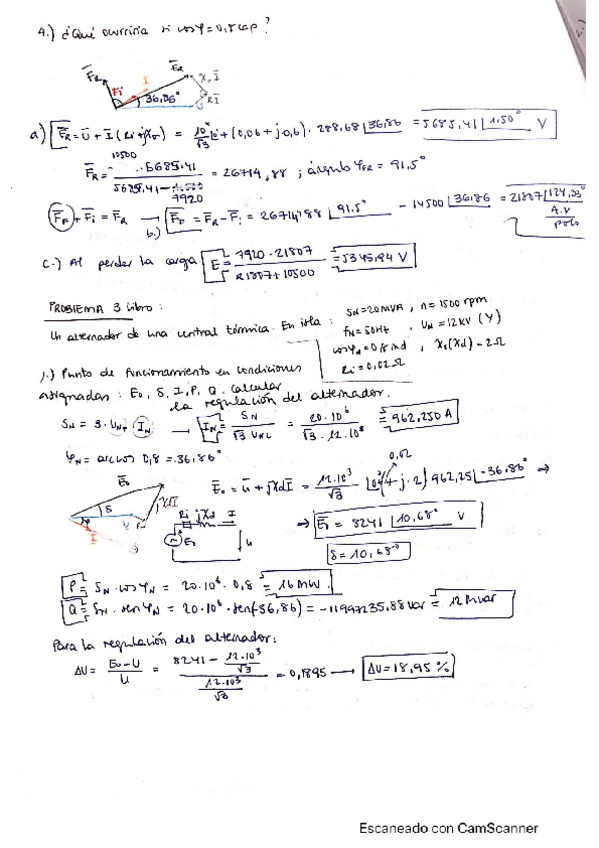 4.) ¿Qué ocurriría si cosφ=0,8 cap?
F̄R
Fi
I
ĒR
XσĪ
RĪ
36,86°
a) ĒR = Ū + Ī (Ri + jXσ) = 10⁴/√3 + (0,06 + j0,6) · 288,68 |36,86 = 5685,41 |1,50° V
F̄R = 10500 · 5685,41 / 7920 - 5685,41 = 26714,88 ; ángulo φFR = 91,5°
F̄F + F̄i = F̄R → b.) F̄F = F̄R - F̄i = 26714,88 |91,5° - 14500 |36,86 = 21807 A.v/polo
c.) Al perder la carga E = 7920 · 21807 / 21807 + 10500 = 5345,94 V
PROBLEMA 3 Libro:
Un alternador de una central térmica. En isla : SN = 20 MVA, n = 1500 rpm
fN = 50Hz, UN = 12 kV (Y)
cosφN = 0,8 ind, Xs(Xd) = 2Ω
Ri = 0,02Ω
1.) Punto de funcionamiento en condiciones
asignadas: E0, δ, I, P, Q. Calcular
la regulación del alternador.
SN = 3 · UN · IN → IN = SN / √3 UNL = 20·10⁶ / √3 · 12·10³ = 962,250 A
φN = arccos 0,8 = 36,86°
Ē0 = Ū + jXdĪ = 12·10³/√3 + j·2 962,25 |-36,86° →
0,02
→ Ē0 = 8241 |10,68° V
δ = 10,68°
Ē0
δ
φ
U
I
XdĪ
Ri
jXd
I
E0
U
P = SN · cosφN = 20·10⁶ · 0,8 = 16 MW.
Q = SN · senφN = 20·10⁶ · sen(-36,86) = -11997235,88 var = 12 Mvar
Para la regulación del alternador:
ΔU = E0 - U / U = 8241 - 12·10³/√3 / 12·10³/√3 = 0,1895 → ΔU = 18,95 %
Escaneado con CamScanner